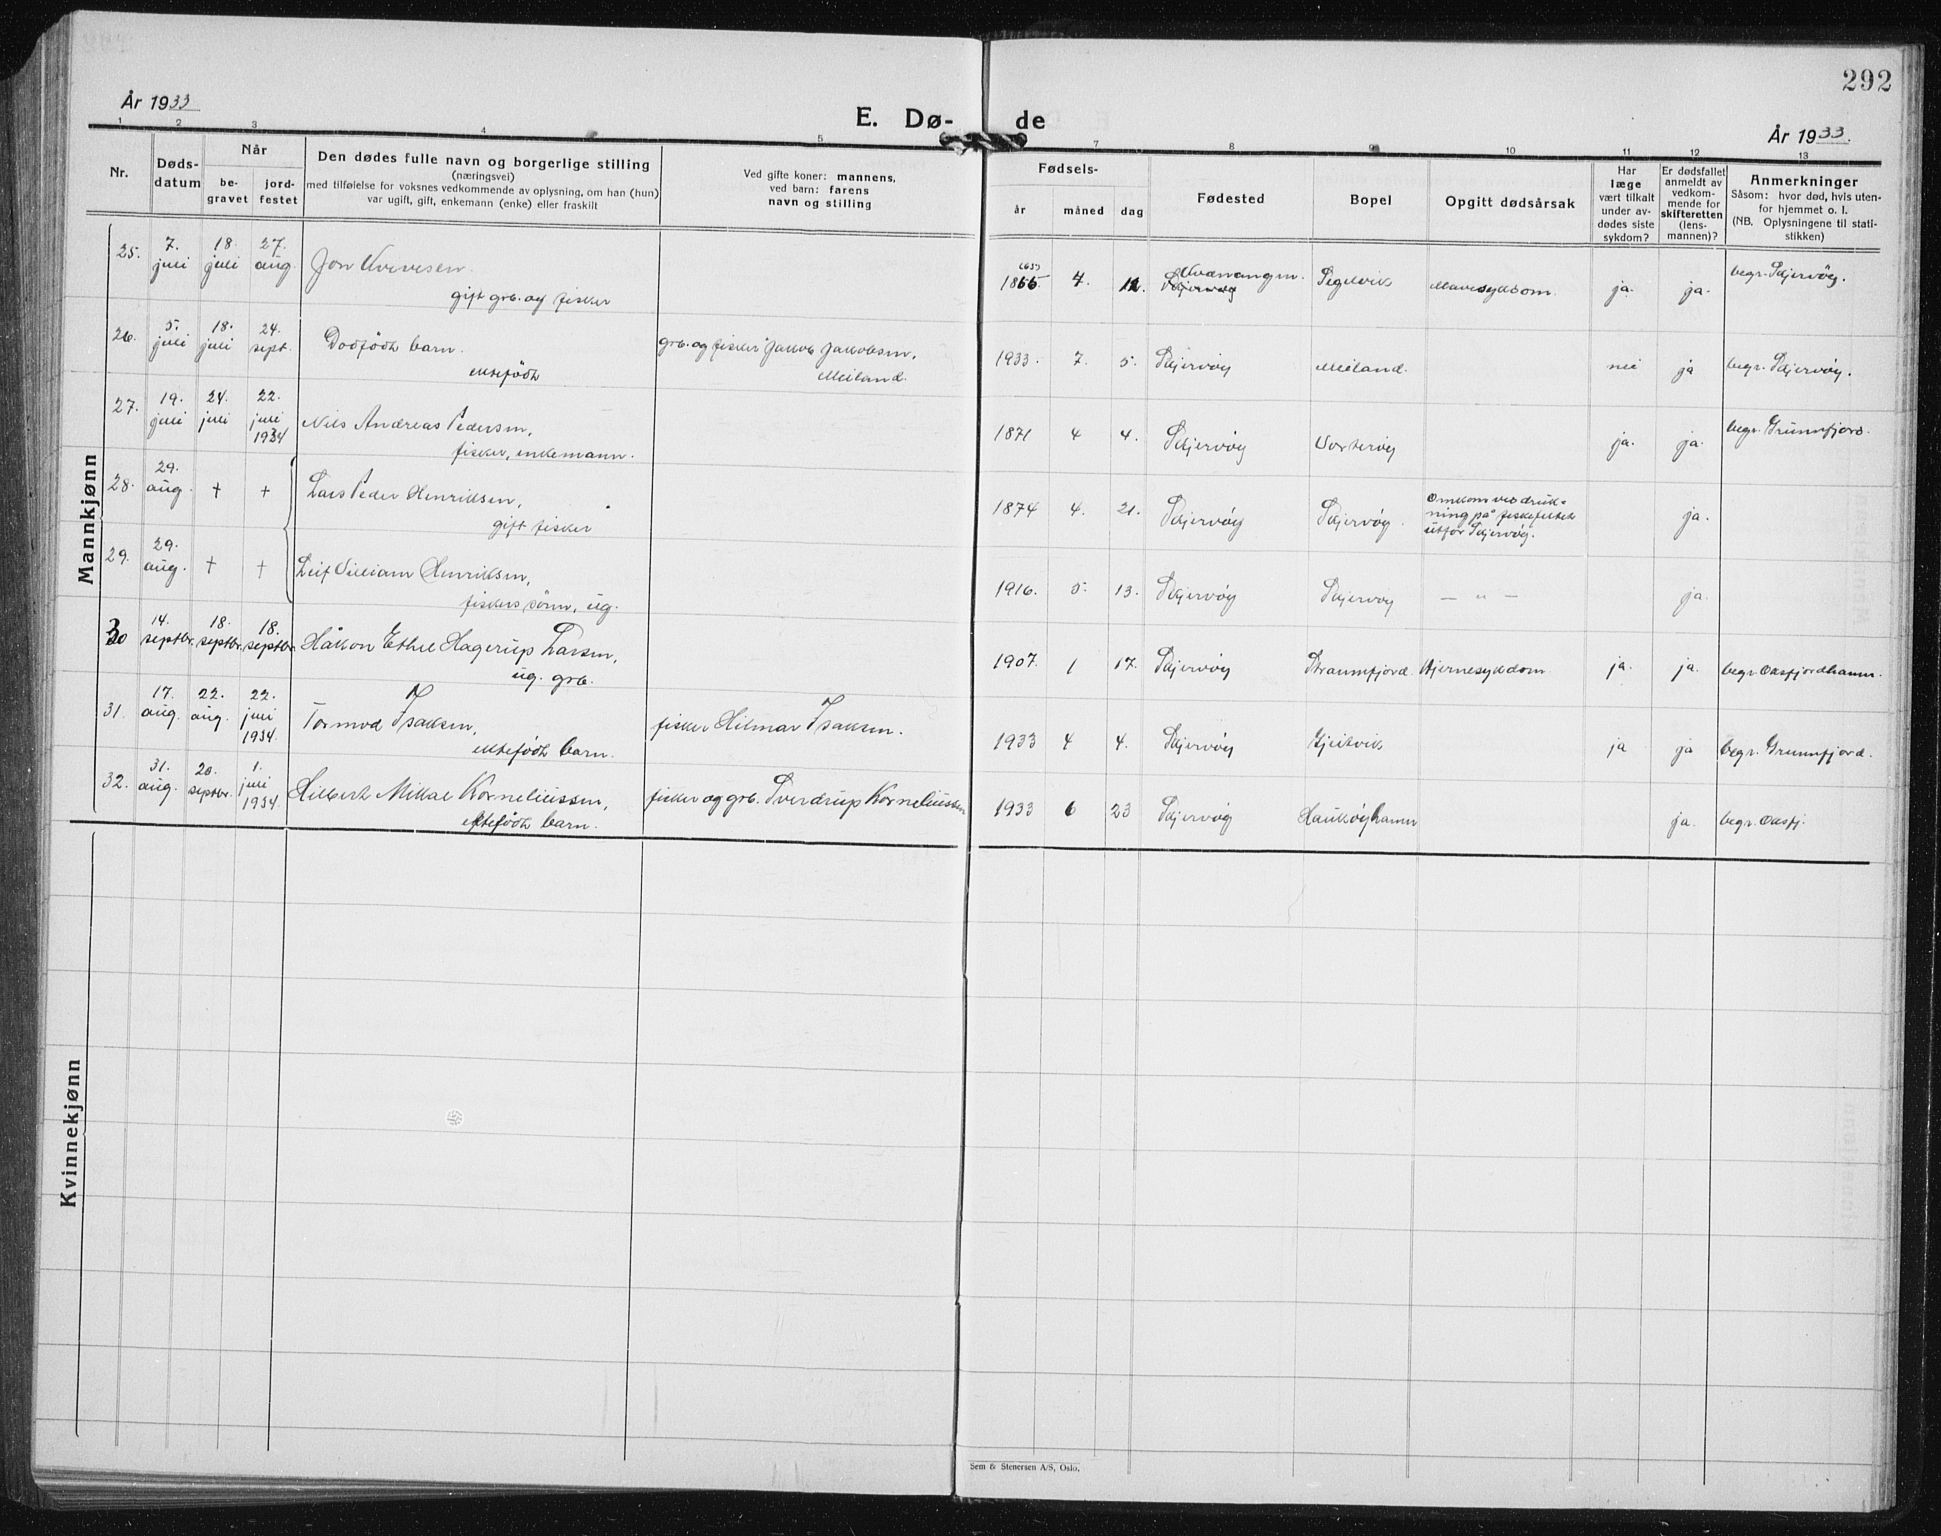 292
År 1933
E. Dø-
de
År 1933.
1 2 3 4 5 7 8 9 10 11 12 13
Nr.
Døds-
datum
Når
be-
gravet
jord-
festet
Den dødes fulle navn og borgerlige stilling
(næringsvei)
med tilføielse for voksnes vedkommende av oplysning, om han (hun)
var ugift, gift, enkemann (enke) eller fraskilt
Ved gifte koner: mannens,
ved barn: farens
navn og stilling
Fødsels-
år måned dag
Fødested
Bopel
Opgitt dødsårsak
Har
læge
vært tilkalt
under av-
dødes siste
sykdom?
Er dødsfallet
anmeldt av
vedkom-
mende for
skifteretten
(lens-
mannen)?
Anmerkninger
Såsom: hvor død, hvis uten-
for hjemmet o. l.
(NB. Oplysningene til stati-
stikken)
Mannkjønn
25. 7. juli 18. juli 27. aug. Jon Iversen.
gift grb. og fisker
(65) 1866. 4. 12. Kvænangen. Skjervøy Segelvik Mavesykdom. ja. ja. begr. Skjervøy.
26. 5. juli 18. juli 24. sept. Dødfødt barn.
ektefødt
grb. og fisker Jakob Jakobsen,
Meiland.
1933. 7. 5. Skjervøy Meiland. nei ja begr. Skjervøy.
27. 19. juli 24. juli 22. juli 1934 Nils Andreas Pedersen,
fisker, enkemann.
1871 4 4. Skjervøy Vorterøy ja. ja. begr. Grunnfjord.
28. 29. aug. + + Lars Peder Henriksen,
gift fisker
1874 4. 21. Skjervøy Skjervøy. Omkom ved druk-
ning på fiskefeltet
utfor Skjervøy. ja.
29. 29. aug. + + Leif William Henriksen,
fiskers sønn, ug.
1916. 5. 13. Skjervøy Skjervøy — " — ja.
30 14. septbr. 18. septbr. 18. septbr. Håkon Ethel Hagerup Larsen,
ug. grb.
1907. 1 17. Skjervøy Straumfjord. Hjernesykdom ja. ja. begr. Oksfjordhamn.
31. 17. aug. 22. aug. 22. juli 1934. Tormod Isaksen,
ektefødt barn.
fisker Hilmar Isaksen.
1933 4 4. Skjervøy Kjeltvik ja ja begr. Grunnfjord.
32. 31. aug. 20. septbr. 1. juli 1934 Hilbert Mikal Korneliussen,
ektefødt barn.
fisker og grb. Sverdrup Korneliussen
1933 6 23 Skjervøy Haukøyhamn ja. begr. Oksfj.
Kvinnekjønn
Sem & Stenersen A/S, Oslo.